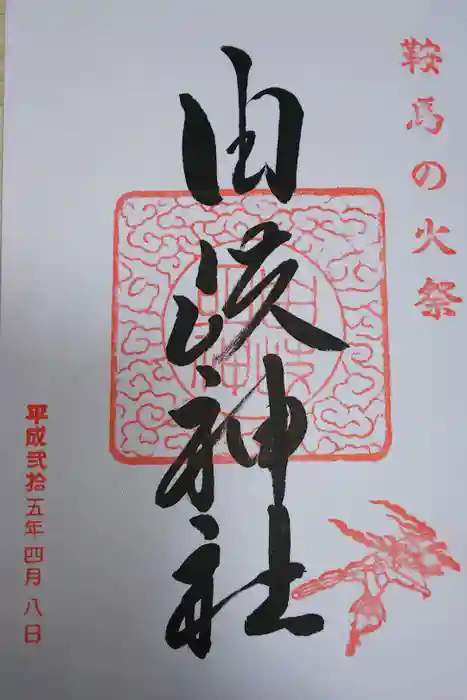 鞍馬の火祭
由岐神社
平成弐拾五年四月八日